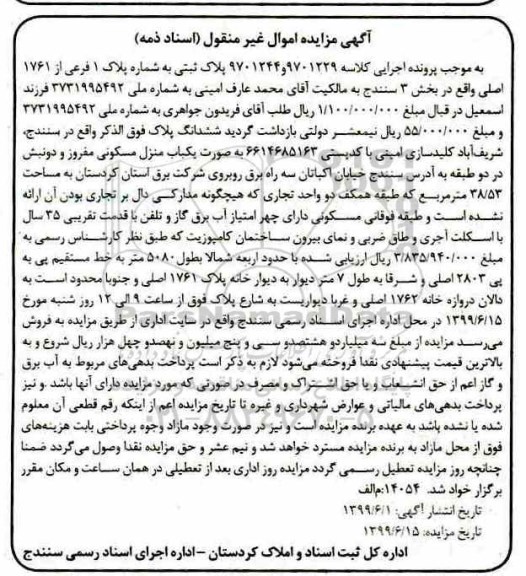 آگهی مزایده اموال غیر منقول (اسناد ذمه)
به موجب پرونده اجرایی کلاسه ۹۷۰۱۲۲۹و۹۷۰۱۲۴۴ پلاک ثبتی به شماره پلاک ۱ فرعی از ۱۷۶۱
اصلی واقع در بخش ۳ سنندج به مالکیت آقای محمد عارف امینی به شماره ملی ۳۷۳۱۹۹۵۴۹۲ فرزند
اسمعیل در قبال مبلغ ۱/۱۰۰/۰۰۰/۰۰۰ ریال طلب آقای فریدون جواهری به شماره ملی ۳۷۳۱۹۹۵۴۹۲
و مبلغ ۵۵/۰۰۰/۰۰۰ ریال نیمعشر دولتی بازداشت گردید ششدانگ پلاک فوق الذکر واقع در سنندج،
شریف‌آباد کلیدسازی امینی با کدپستی ۶۶۱۴۶۸۵۱۶۳ به صورت یکباب منزل مسکونی مفروز و دونبش
در دو طبقه به آدرس سنندج خیابان اکباتان سه راه برق روبروی شرکت برق استان کردستان به مساحت
۳۸/۵۳ مترمربع که طبقه همکف دو واحد تجاری که هیچگونه مدارکی دال بر تجاری بودن آن ارائه
نشده است و طبقه فوقانی مسکونی دارای چهر امتیاز آب برق گاز و تلفن با قدمت تقریبی ۳۵ سال
با اسکلت آجری و طاق ضربی و نمای بیرون ساختمان کامپوزیت که طبق نظر کارشناس رسمی به
مبلغ ۳/۸۳۵/۹۴۰/۰۰۰ ریال ارزیابی شده با حدود اربعه شمالا بطول ۵۰۸۰ متر به خط مستقیم پی به
پی ۲۸۰۳ اصلی و شرقا به طول ۷ متر دیوار به دیوار خانه پلاک ۱۷۶۱ اصلی و جنوبا محدود است به
دالان دروازه خانه ۱۷۶۲ اصلی و غربا دیواریست به شارع پلاک فوق از ساعت ۹ الی ۱۲ روز شنبه مورخ
۱۳۹۹/۶/۱۵ در محل اداره اجرای اسناد رسمی سنندج واقع در سایت اداری از طریق مزایده به فروش
می‌رسد مزایده از مبلغ سه میلیاردو هشتصدو سی و پنج میلیون و نهصدو چهل هزار ریال شروع و به
بالاترین قیمت پیشنهادی نقدا فروخته می‌شود لازم به ذکر است پرداخت بدهی‌های مربوط به آب برق
و گاز اعم از حق انشعاب و یا حق اشتراک و مصرف در صورتی که مورد مزایده دارای آنها باشد .و نیز
پرداخت بدهی‌های مالیاتی و عوارض شهرداری و غیره تا تاریخ مزایده اعم از اینکه رقم قطعی آن معلوم
شده یا نشده باشد به عهده برنده مزایده است و نیز در صورت وجود مازاد وجوه پرداختی بابت هزینه‌های
فوق از محل مازاد به برنده مزایده مسترد خواهد شد و نیم عشر و حق مزایده نقدا وصول می‌گردد ضمنا
چنانچه روز مزایده تعطیل رسمی گردد مزایده روز اداری بعد از تعطیلی در همان ساعت و مکان مقرر
برگزار خواد شد. ۱۴۰۵۴:م‌الف
تاریخ انتشار آگهی: ۱۳۹۹/۶/۱
تاریخ مزایده: ۱۳۹۹/۶/۱۵
اداره کل ثبت اسناد و املاک کردستان –اداره اجرای اسناد رسمی سنندج
ParsNamadData